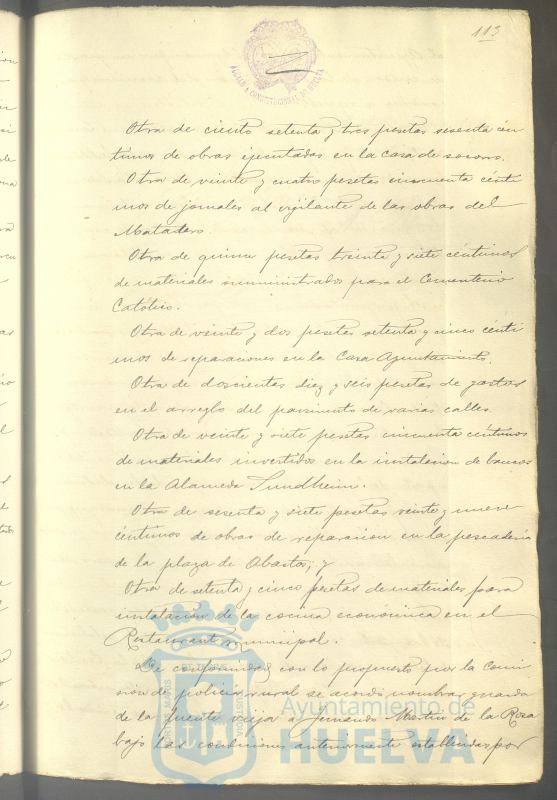 113
Otra de ciento setenta y tres pesetas sesenta cén
timos de obras ejecutadas en la casa de socorro.
Otra de veinte y cuatro pesetas cincuenta cénti
mos de jornales al vigilante de las obras del
Matadero.
Otra de quince pesetas treinta y siete céntimos
de materiales suministrados para el Cementerio
Católico.
Otra de veinte y dos pesetas setenta y cinco cénti
mos de reparaciones en la Casa Ayuntamiento.
Otra de doscientas diez y seis pesetas de gastos
en el arreglo del pavimento de varias calles.
Otra de veinte y siete pesetas cincuenta céntimos
de materiales invertidos en la instalacion de bancos
en la Alameda Sundheim.
Otra de sesenta y siete pesetas veinte y nueve
céntimos de obras de reparacion en la pescadería
de la plaza de Abastos; y
Otra de setenta y cinco pesetas de materiales para
instalación de la cocina económica en el
Restaurant municipal.
De conformidad con lo propuesto por la Comi
sión de policía rural se acordó nombrar guarda
de la fuente vieja á Fernando Martin de la Rosa
bajo las condiciones anteriormente establecidas por
Ayuntamiento de
HUELVA